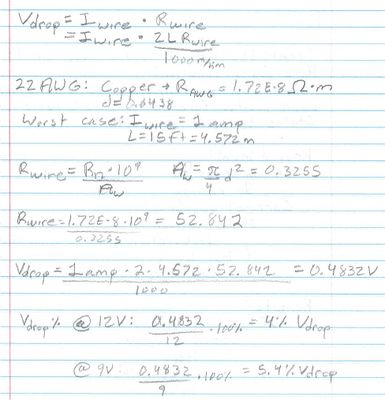 Vdrop = Iwire · Rwire
= Iwire · 2LRwire
1000m/km
22AWG: Copper → RAWG = 1.72E-8 Ω·m
d = 0.6438
Worst case: Iwire = 1amp
L = 15ft = 4.572m
Rwire = RΩ·10⁹ / Aw Aw = π/4 d² = 0.3255
Rwire = 1.72E-8·10⁹ = 52.842
0.3255
Vdrop = 1amp · 2 · 4.572 · 52.842 = 0.4832V
1000
Vdrop% @ 12V: 0.4832 · 100% = 4% Vdrop
12
@ 9V: 0.4832 · 100% = 5.4% Vdrop
9